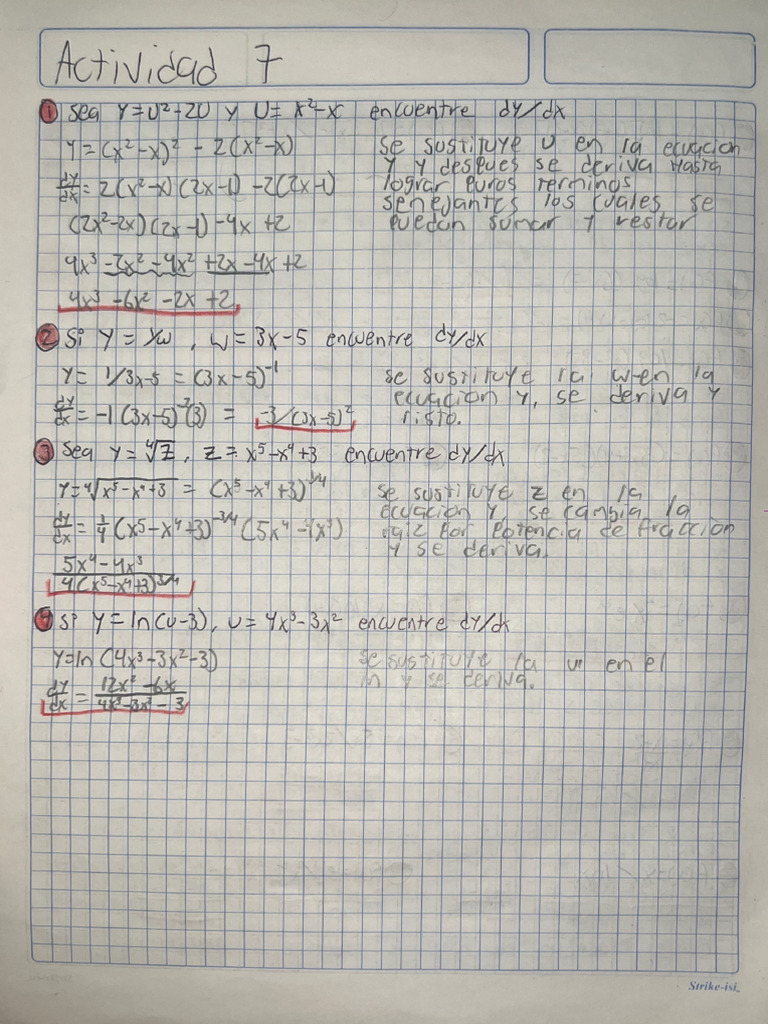 Actividad 7
1 Sea Y=U²+2U y U= x²-x encuentre dy/dx
Y=(x²-x)² - 2(x²-x)
dy/dx=2(x²-x)(2x-1)-2(2x-1)
(2x²-2x)(2x-1)-4x+2
4x³-2x²-4x²+2x-4x+2
4x³-6x²-2x+2
Se sustituye U en la ecuacion
Y y despues se deriva Hasta
lograr puros terminos
los cuales se
puedan sumar y restar
2 Si Y= 1/w , w= 3x-5 encuentre dy/dx
Y= 1/3x-5 = (3x-5)⁻¹
dy/dx=-1(3x-5)⁻²(3) = -3/(3x-5)²
se sustituye la w en la
ecuacion y, se deriva y
listo.
3 Sea Y=⁴√Z, Z= x⁵-x⁴+3 encuentre dy/dx
Y=⁴√x⁵-x⁴+3 = (x⁵-x⁴+3)^1/4
dy/dx=1/4(x⁵-x⁴+3)^-3/4(5x⁴-4x³)
5x⁴-4x³
4(x⁵-x⁴+3)^3/4
se sustituye z en la
ecuacion Y, se cambia la
raiz por potencia de fraccion
Y se deriva.
4 Si Y=ln(u-3), U=4x³-3x² encuentre dy/dx
Y=ln(4x³-3x²-3)
dy/dx = 12x²-6x
4x³-3x²-3
Se sustituye la u en el
ln y se deriva.
Strike-isi.